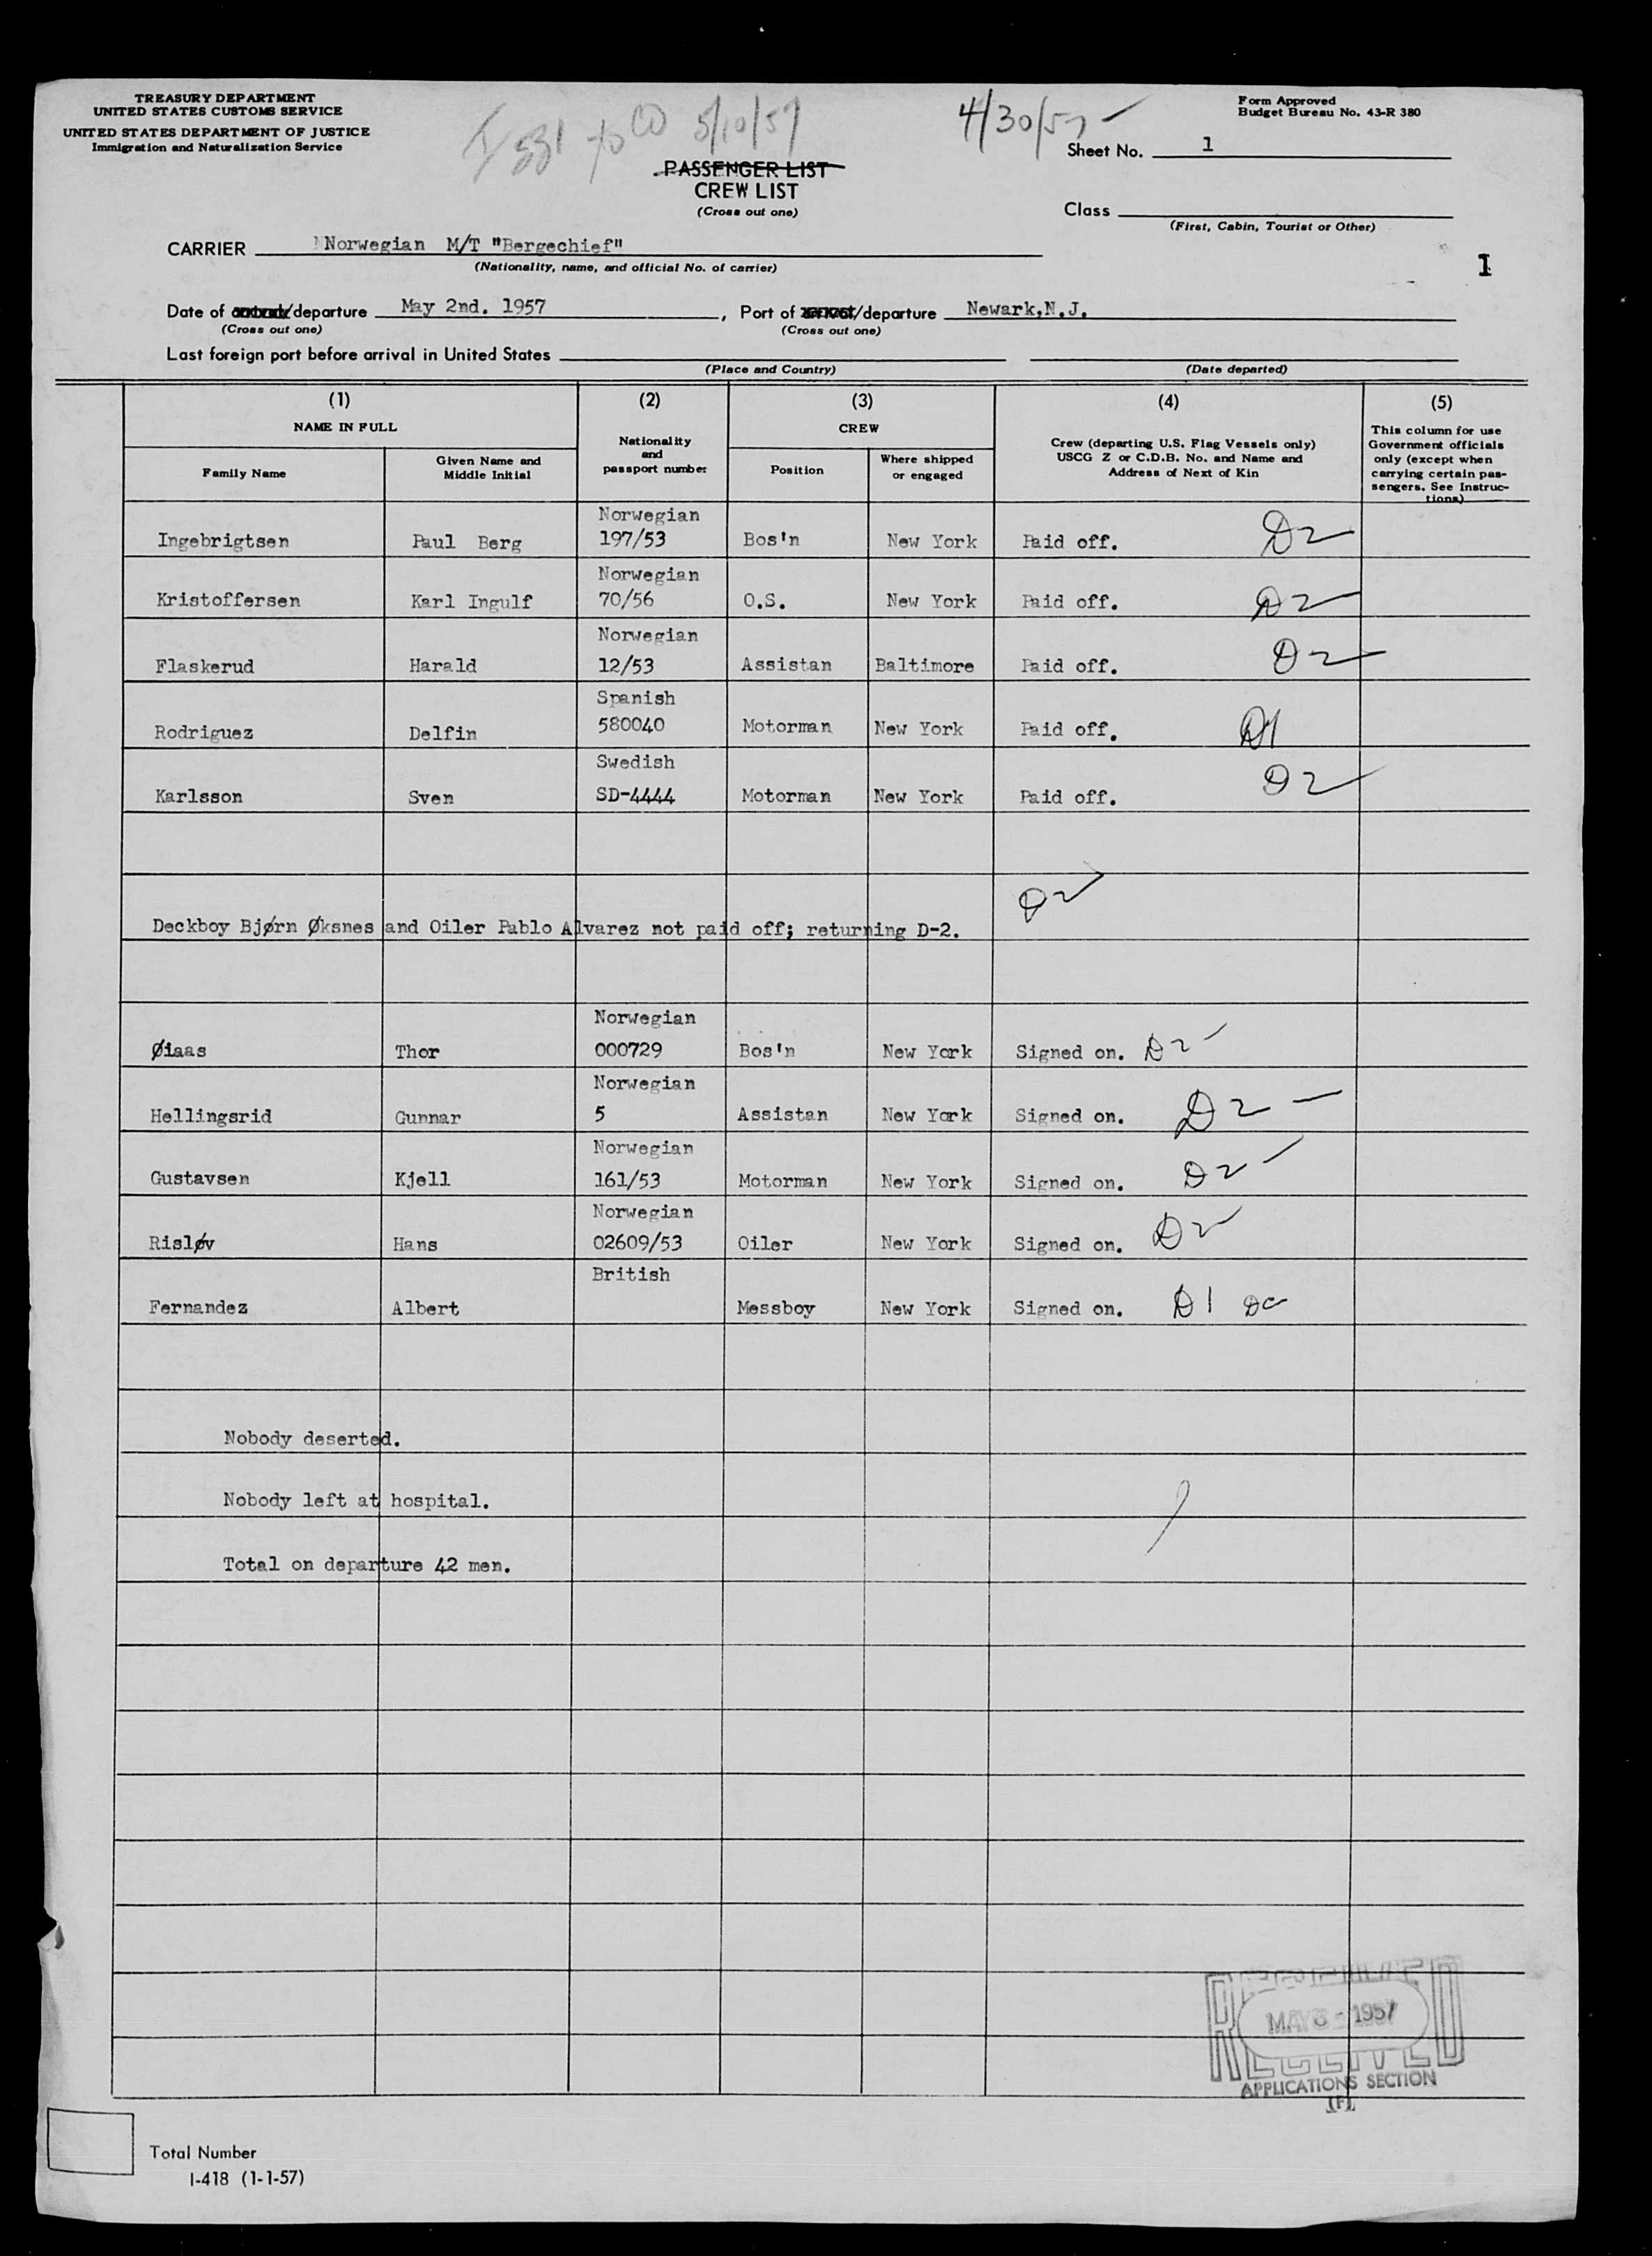 TREASURY DEPARTMENT
UNITED STATES CUSTOMS SERVICE
UNITED STATES DEPARTMENT OF JUSTICE
Immigration and Naturalization Service
5/10/57
4/30/57
Form Approved
Budget Bureau No. 43-R 380
Sheet No. 1
PASSENGER LIST
CREW LIST
(Cross out one)
Class
(First, Cabin, Tourist or Other)
CARRIER Norwegian M/T "Bergechief"
(Nationality, name, and official No. of carrier)
I
Date of /departure May 2nd. 1957, Port of /departure Newark,N.J.
(Cross out one) (Cross out one)
Last foreign port before arrival in United States
(Place and Country) (Date departed)
(1) (2) (3) (4) (5)
NAME IN FULL
Family Name
Given Name and
Middle Initial
Nationality
and
passport number
CREW
Position
Where shipped
or engaged
Crew (departing U.S. Flag Vessels only)
USCG Z or C.D.B. No. and Name and
Address of Next of Kin
This column for use
Government officials
only (except when
carrying certain pas-
sengers. See Instruc-
tions)
Norwegian
Ingebrigtsen Paul Berg 197/53 Bos'n New York Paid off. D2
Norwegian
Kristoffersen Karl Ingulf 70/56 O.S. New York Paid off. D2
Norwegian
Flaskerud Harald 12/53 Assistan Baltimore Paid off. D2
Spanish
Rodriguez Delfin 580040 Motorman New York Paid off. D1
Swedish
Karlsson Sven SD-4444 Motorman New York Paid off. D2
D2
Deckboy Bjørn Øksnes and Oiler Pablo Alvarez not paid off; returning D-2.
Norwegian
Øiaas Thor 000729 Bos'n New York Signed on. D2
Norwegian
Hellingsrid Gunnar 5 Assistan New York Signed on. D2
Norwegian
Gustavsen Kjell 161/53 Motorman New York Signed on. D2
Norwegian
Risløv Hans 02609/53 Oiler New York Signed on. D2
British
Fernandez Albert Messboy New York Signed on. D1
Nobody deserted.
Nobody left at hospital.
Total on departure 42 men.
RECEIVED
MAY 8 - 1957
RECEIVED
APPLICATIONS SECTION
(F)
Total Number
I-418 (1-1-57)